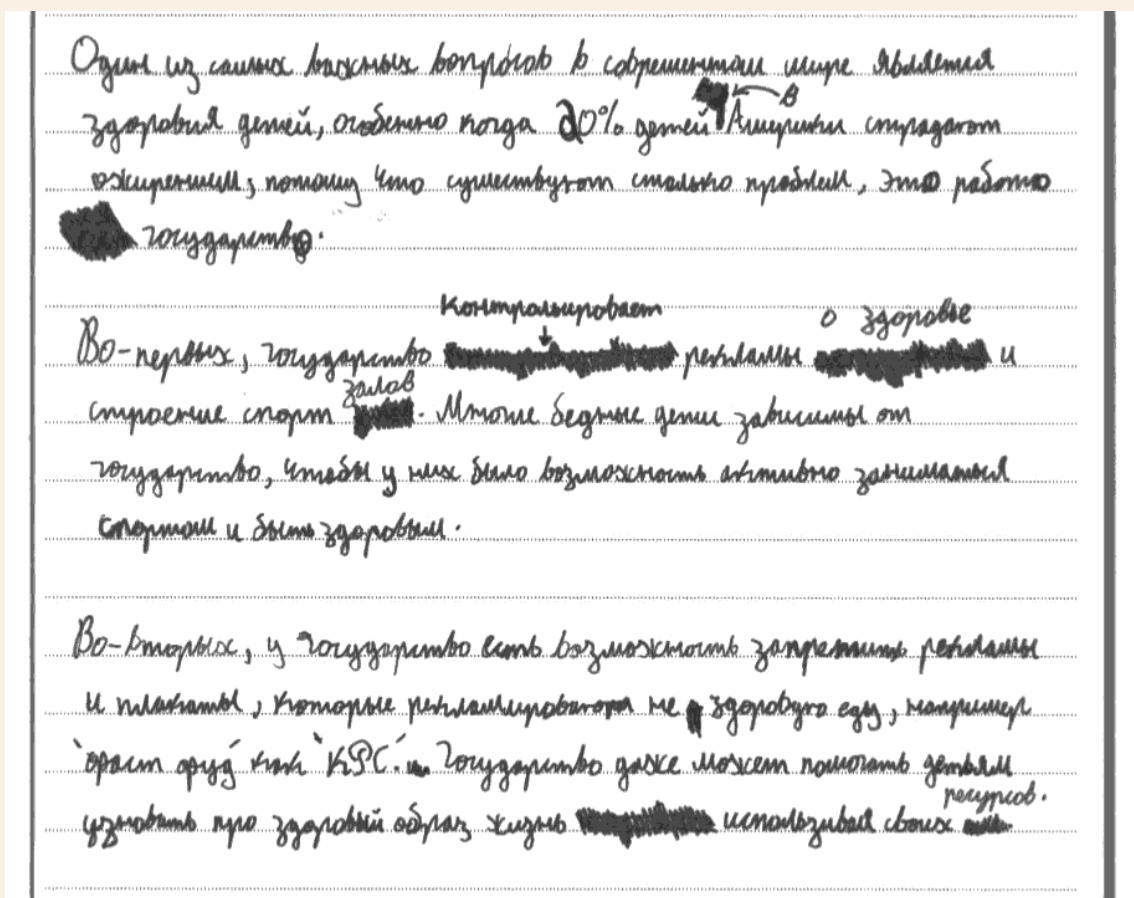 Один из самых важных вопросов в современном мире является
здоровья детей, особенно когда 20% детей в Америки страдают
ожирением, потому что существуют столько проблем, это работо
государство.
Во-первых, государство контралирoвает рекламы о здоровье и
строение спорт залов. Многие бедные дети зависимы от
государство, чтобы у них было возможность активно заниматься
спортом и быть здоровым.
Во-вторых, у государство есть возможность запретить рекламы
и плакаты, которые рекламироватют не здоровую еду, например
'фаст фуд' как 'KFC'. Государство даже может помогать детьям
узновать про здоровый образ жизнь использывая своих ресурсов.